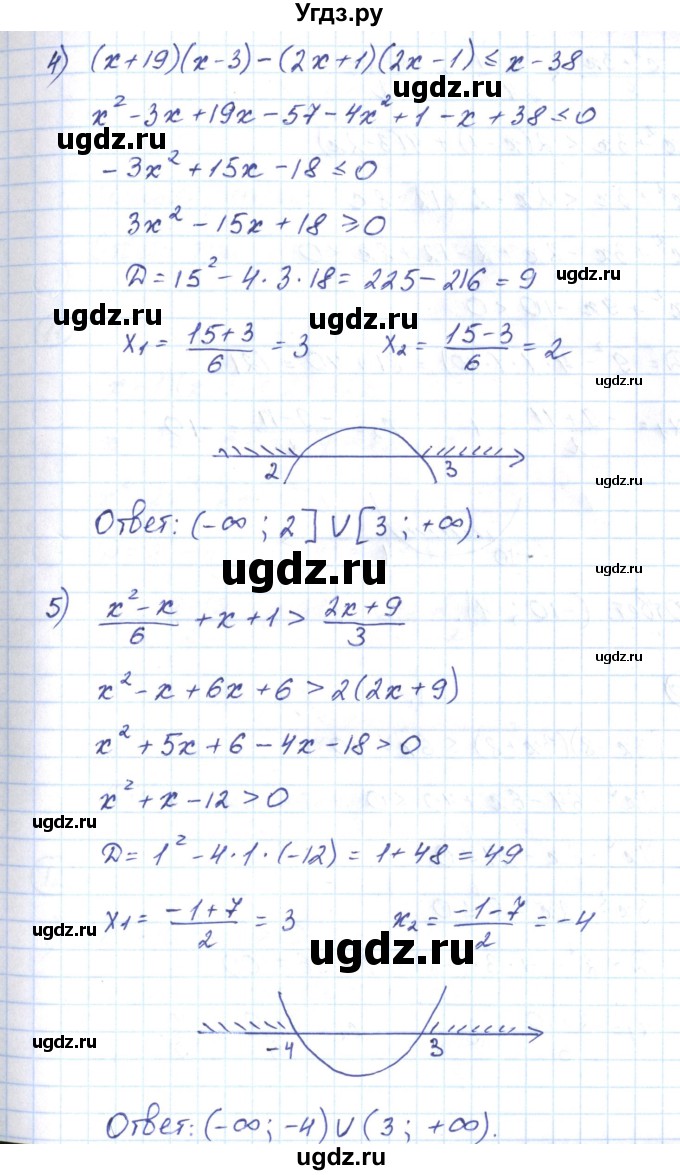 Угдз.ру
4) (x+19)(x-3)-(2x+1)(2x-1)≤x-38
ugdz.ru
x²-3x+19x-57-4x²+1-x+38≤0
ugdz.ru
-3x²+15x-18≤0
3x²-15x+18≥0
Д=15²-4·3·18=225-216=9
ugdz.ru
ugdz.ru ugdz.ru
x₁=(15+3)/6=3 x₂=(15-3)/6=2
ugdz.ru
2 3
ugdz.ru
Ответ: (-∞; 2]∪[3; +∞).
ugdz.ru
5) (x²-x)/6+x+1>(2x+9)/3
ugdz.ru
x²-x+6x+6>2(2x+9)
x²+5x+6-4x-18>0
x²+x-12>0
ugdz.ru
Д=1²-4·1·(-12)=1+48=49
x₁=(-1+7)/2=3 x₂=(-1-7)/2=-4
ugdz.ru
ugdz.ru
ugdz.ru
-4 3
Ответ: (-∞; -4)∪(3; +∞).
ugdz.ru